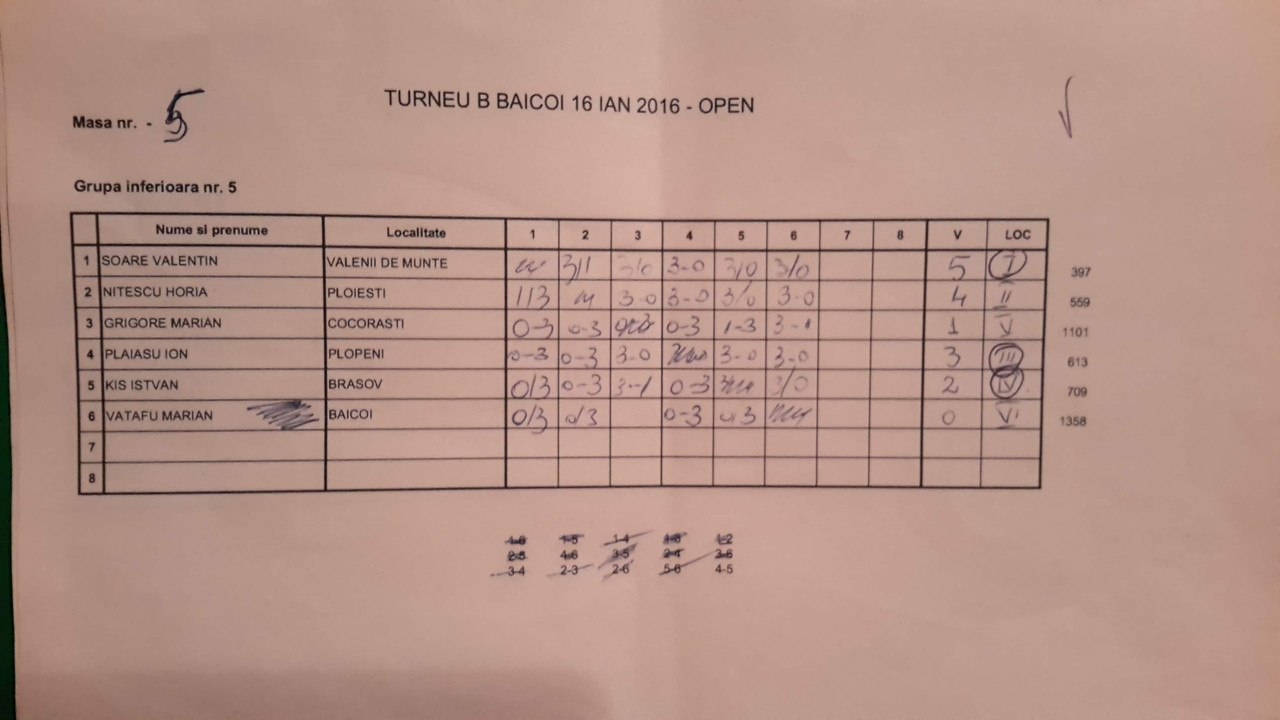 TURNEU B BAICOI 16 IAN 2016 - OPEN
Masa nr. - 5
Grupa inferioara nr. 5
Nume si prenume Localitate 1 2 3 4 5 6 7 8 V LOC
1 SOARE VALENTIN VALENII DE MUNTE 3/1 3/0 3-0 3/0 3/0 5 I 397
2 NITESCU HORIA PLOIESTI 1/3 3-0 3-0 3/0 3-0 4 II 559
3 GRIGORE MARIAN COCORASTI 0-3 0-3 0-3 1-3 3-1 1 V 1101
4 PLAIASU ION PLOPENI 0-3 0-3 3-0 3-0 3-0 3 III 613
5 KIS ISTVAN BRASOV 0/3 0-3 3-1 0-3 3/0 2 IV 709
6 VATAFU MARIAN BAICOI 0/3 0/3 0-3 0-3 0 VI 1358
7
8
1-6 1-5 1-4 1-3 1-2
2-5 4-6 3-5 2-4 3-6
3-4 2-3 2-6 5-6 4-5